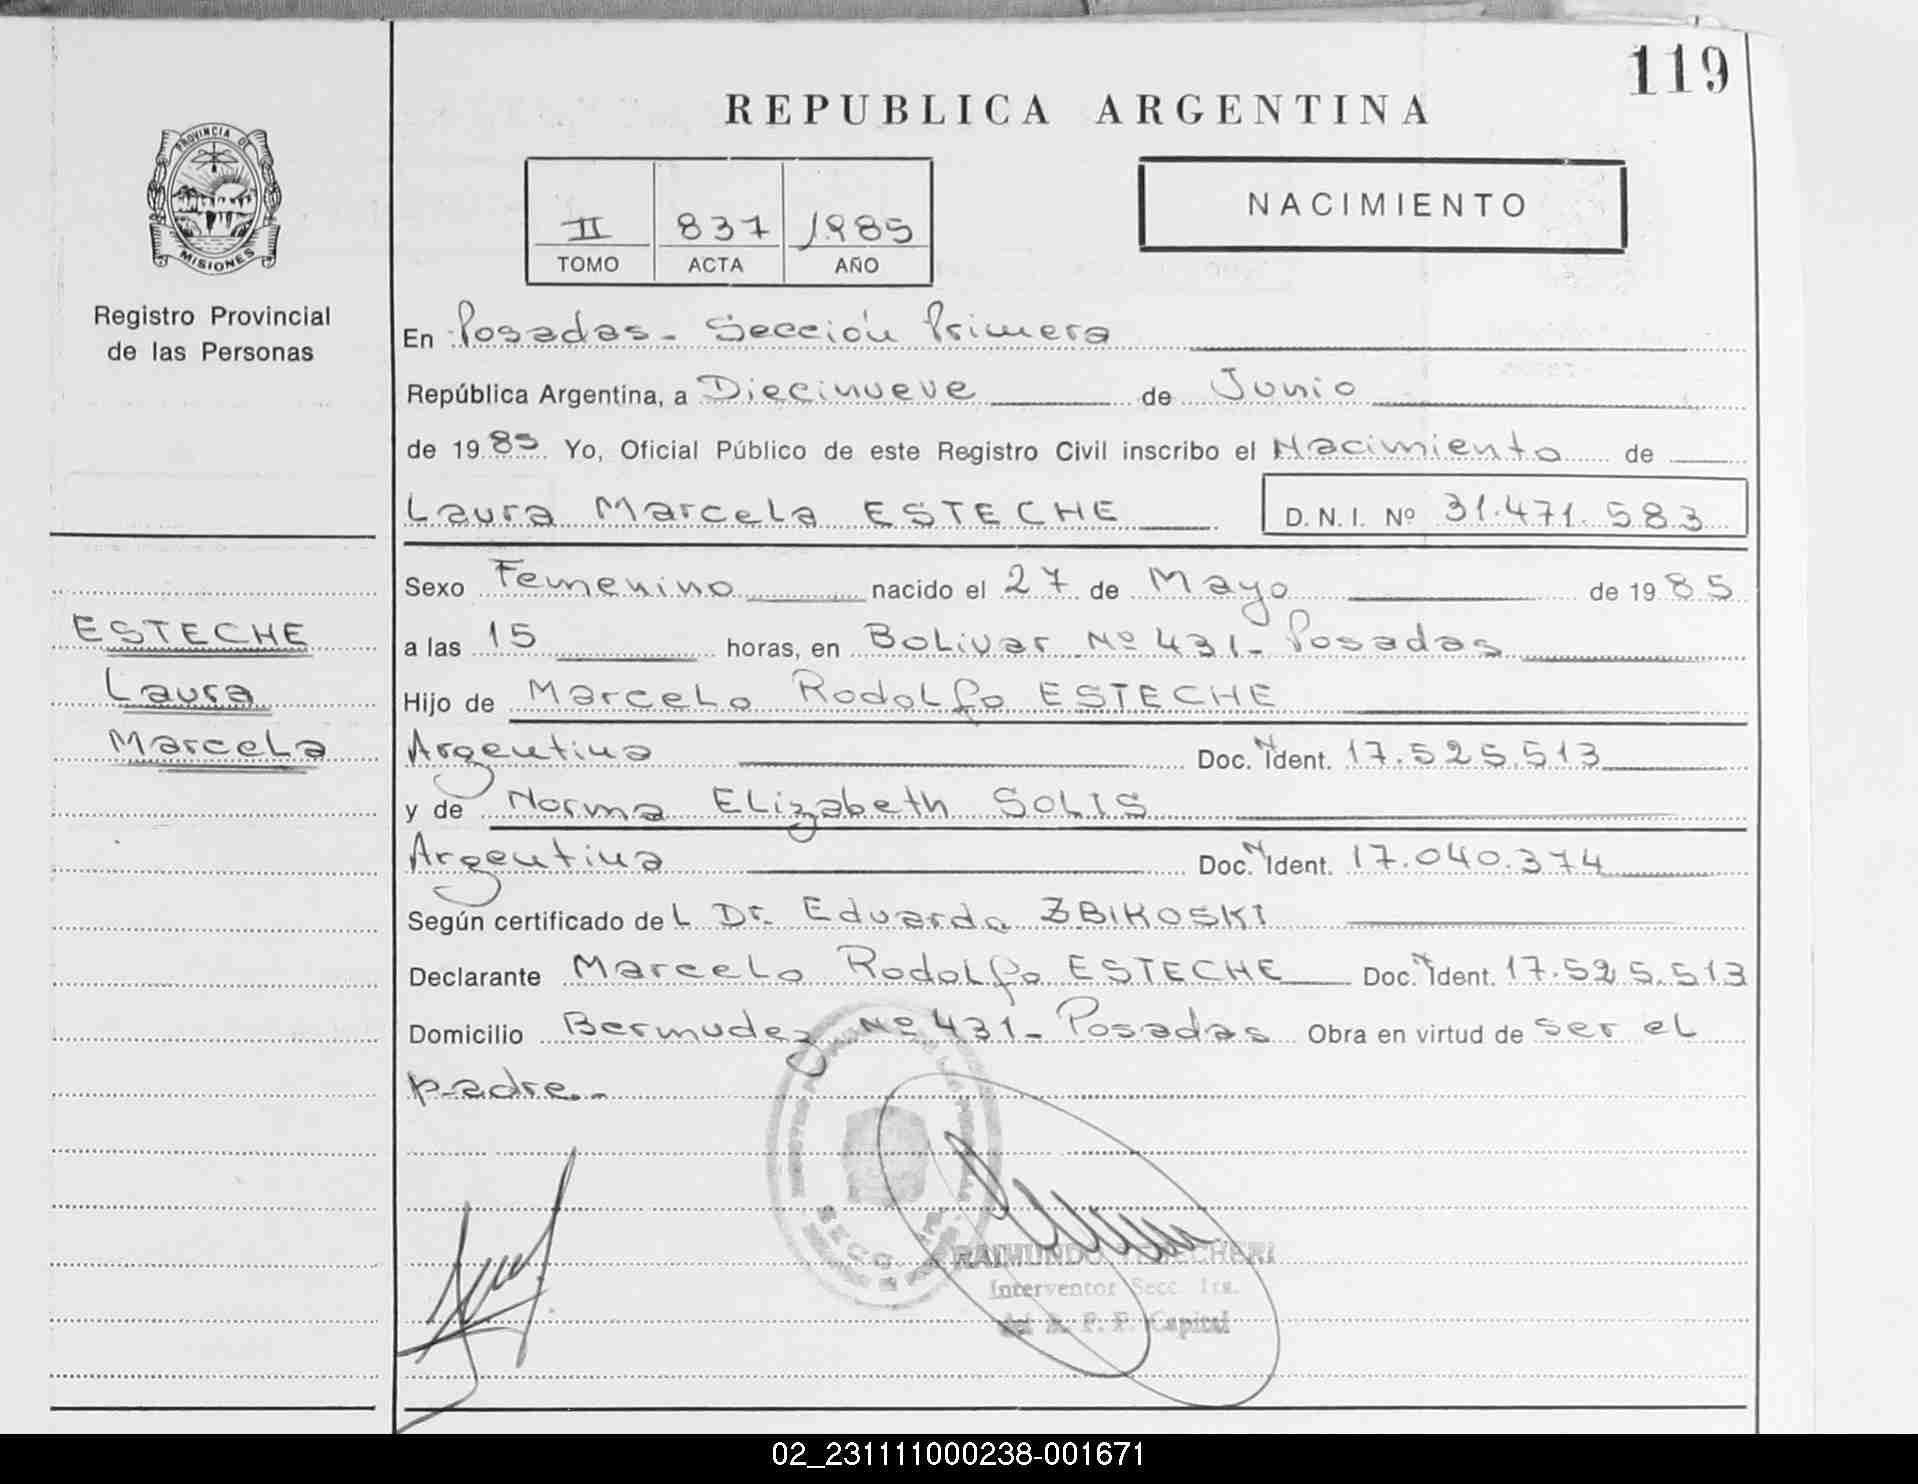 119
REPUBLICA ARGENTINA
PROVINCIA DE
MISIONES
II 837 1985
TOMO ACTA AÑO
NACIMIENTO
Registro Provincial
de las Personas
En Posadas - Sección Primera
República Argentina, a Diecinueve de Junio
de 1985 Yo, Oficial Público de este Registro Civil inscribo el Nacimiento de
Laura Marcela ESTECHE D.N.I. Nº 31.471.583
Sexo Femenino nacido el 27 de Mayo de 1985
ESTECHE
Laura
Marcela
a las 15 horas, en Bolivar Nº 431- Posadas
Hijo de Marcelo Rodolfo ESTECHE
Argentina Doc. N Ident. 17.525.513
y de Norma Elizabeth SOLIS
Argentina Doc. N Ident. 17.040.374
Según certificado del Dr. Eduardo ZBIKOSKI
Declarante Marcelo Rodolfo ESTECHE Doc. N Ident. 17.525.513
Domicilio Bermudez Nº 431- Posadas Obra en virtud de ser el
padre.-
SECC.
RAIMUNDO
Interventor Secc. 1ra.
Capital
02_231111000238-001671